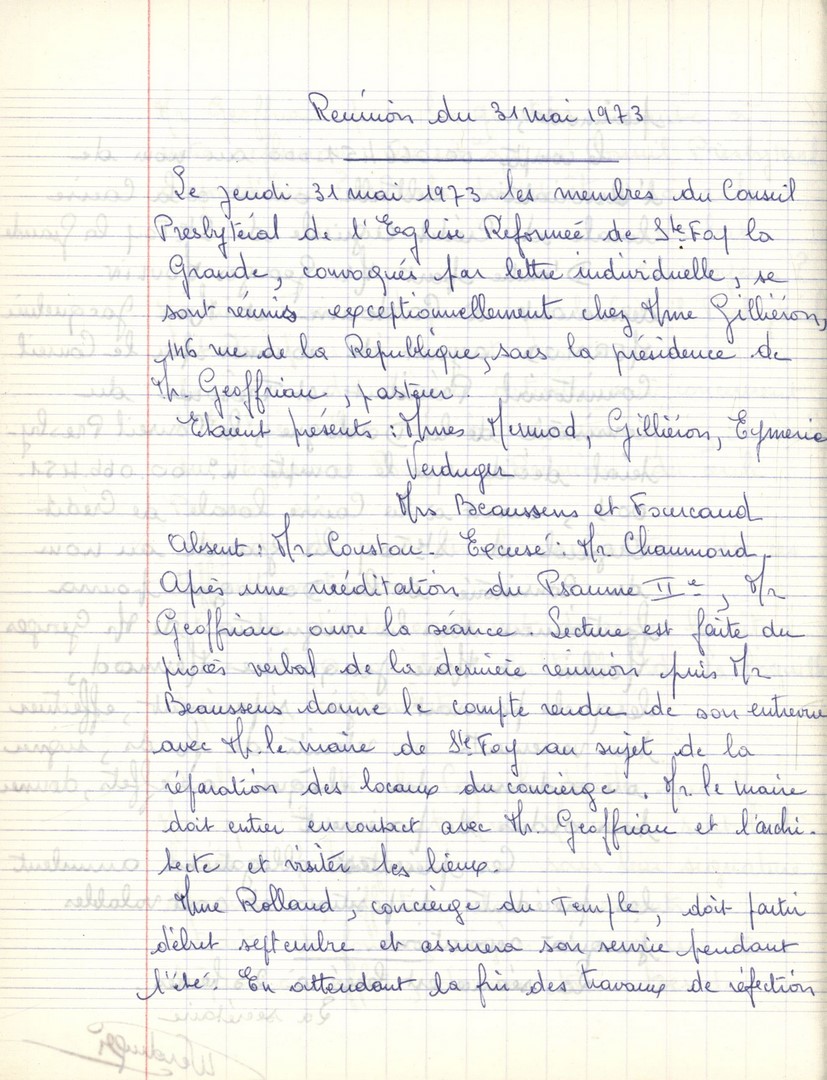 Reunion du 31 mai 1973
Le jeudi 31 mai 1973 les membres du Conseil
Presbytéral de l'Eglise Reformée de Ste Foy la
Grande, convoqués par lettre individuelle, se
sont réunis exceptionnellement chez Mme Gilliéron,
146 rue de la République, sous la présidence de
Mr. Geoffriau, pasteur.
Etaient présents : Mmes Mermod, Gilliéron, Eymerie
Verduger
Mrs Beaussens et Fourcaud
Absent : Mr. Coustou. Excusé : Mr. Chaumond.
Après une méditation du Psaume II e, Mr
Geoffriau ouvre la séance. Lecture est faite du
procès verbal de la dernière réunion puis Mr
Beaussens donne le compte rendu de son entrevue
avec Mr. le maire de Ste Foy au sujet de la
réparation des locaux du concierge. Mr. le maire
doit entrer en contact avec Mr. Geoffriau et l'archi-
tecte et visiter les lieux.
Mme Rolland, concierge du Temple, doit partir
début septembre et assurera son service pendant
l'été. En attendant la fin des travaux de réfection